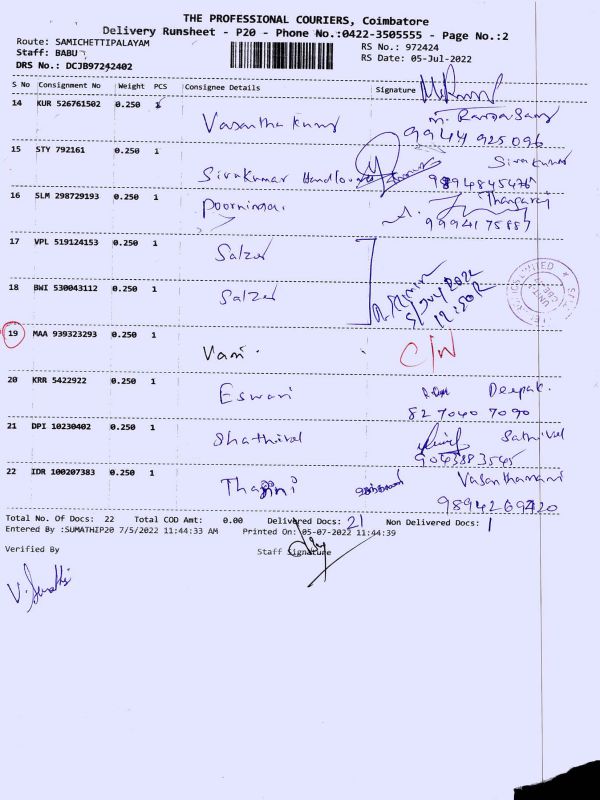 THE PROFESSIONAL COURIERS, Coimbatore
Delivery Runsheet - P20 - Phone No.:0422-3505555 - Page No.:2
Route: SAMICHETTIPALAYAM
RS No.: 972424
Staff: BABU
RS Date: 05-Jul-2022
DRS No.: DCJB97242402
S No Consignment No Weight PCS Consignee Details Signature
14 KUR 526761502 0.250 1 Vasantha kumar
99444 925 096
15 STY 792161 0.250 1 Sivakumar Handloom Sivakumar
9894845476
16 SLM 298729193 0.250 1 Poornima. Thangaraj
99941 75887
17 VPL 519124153 0.250 1 Salzer
18 BWI 530043112 0.250 1 Salzer
5/July 2022
12:50
19 MAA 939323293 0.250 1 Vani. C/N
20 KRR 5422922 0.250 1 Eswari Deepak.
827040 7090
21 DPI 10230402 0.250 1 Shathivel Sathivel
9043383545
22 IDR 100207383 0.250 1 Vasanthamani
9894269420
Total No. Of Docs: 22 Total COD Amt: 0.00 Delivered Docs: 21 Non Delivered Docs: 1
Entered By :SUMATHIP20 7/5/2022 11:44:33 AM Printed On: 05-07-2022 11:44:39
Verified By Staff Signature
V. Sumathi